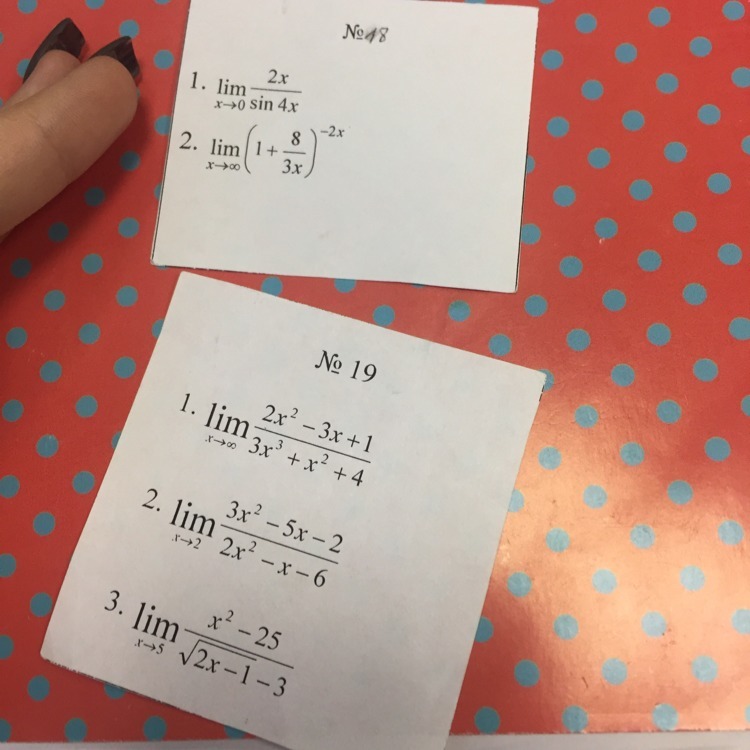 № 48
1. lim x→0 2x/sin 4x
2. lim x→∞ (1 + 8/3x)^−2x
№ 19
1. lim x→∞ (2x² − 3x + 1)/(3x³ + x² + 4)
2. lim x→2 (3x² − 5x − 2)/(2x² − x − 6)
3. lim x→5 (x² − 25)/(√(2x − 1) − 3)